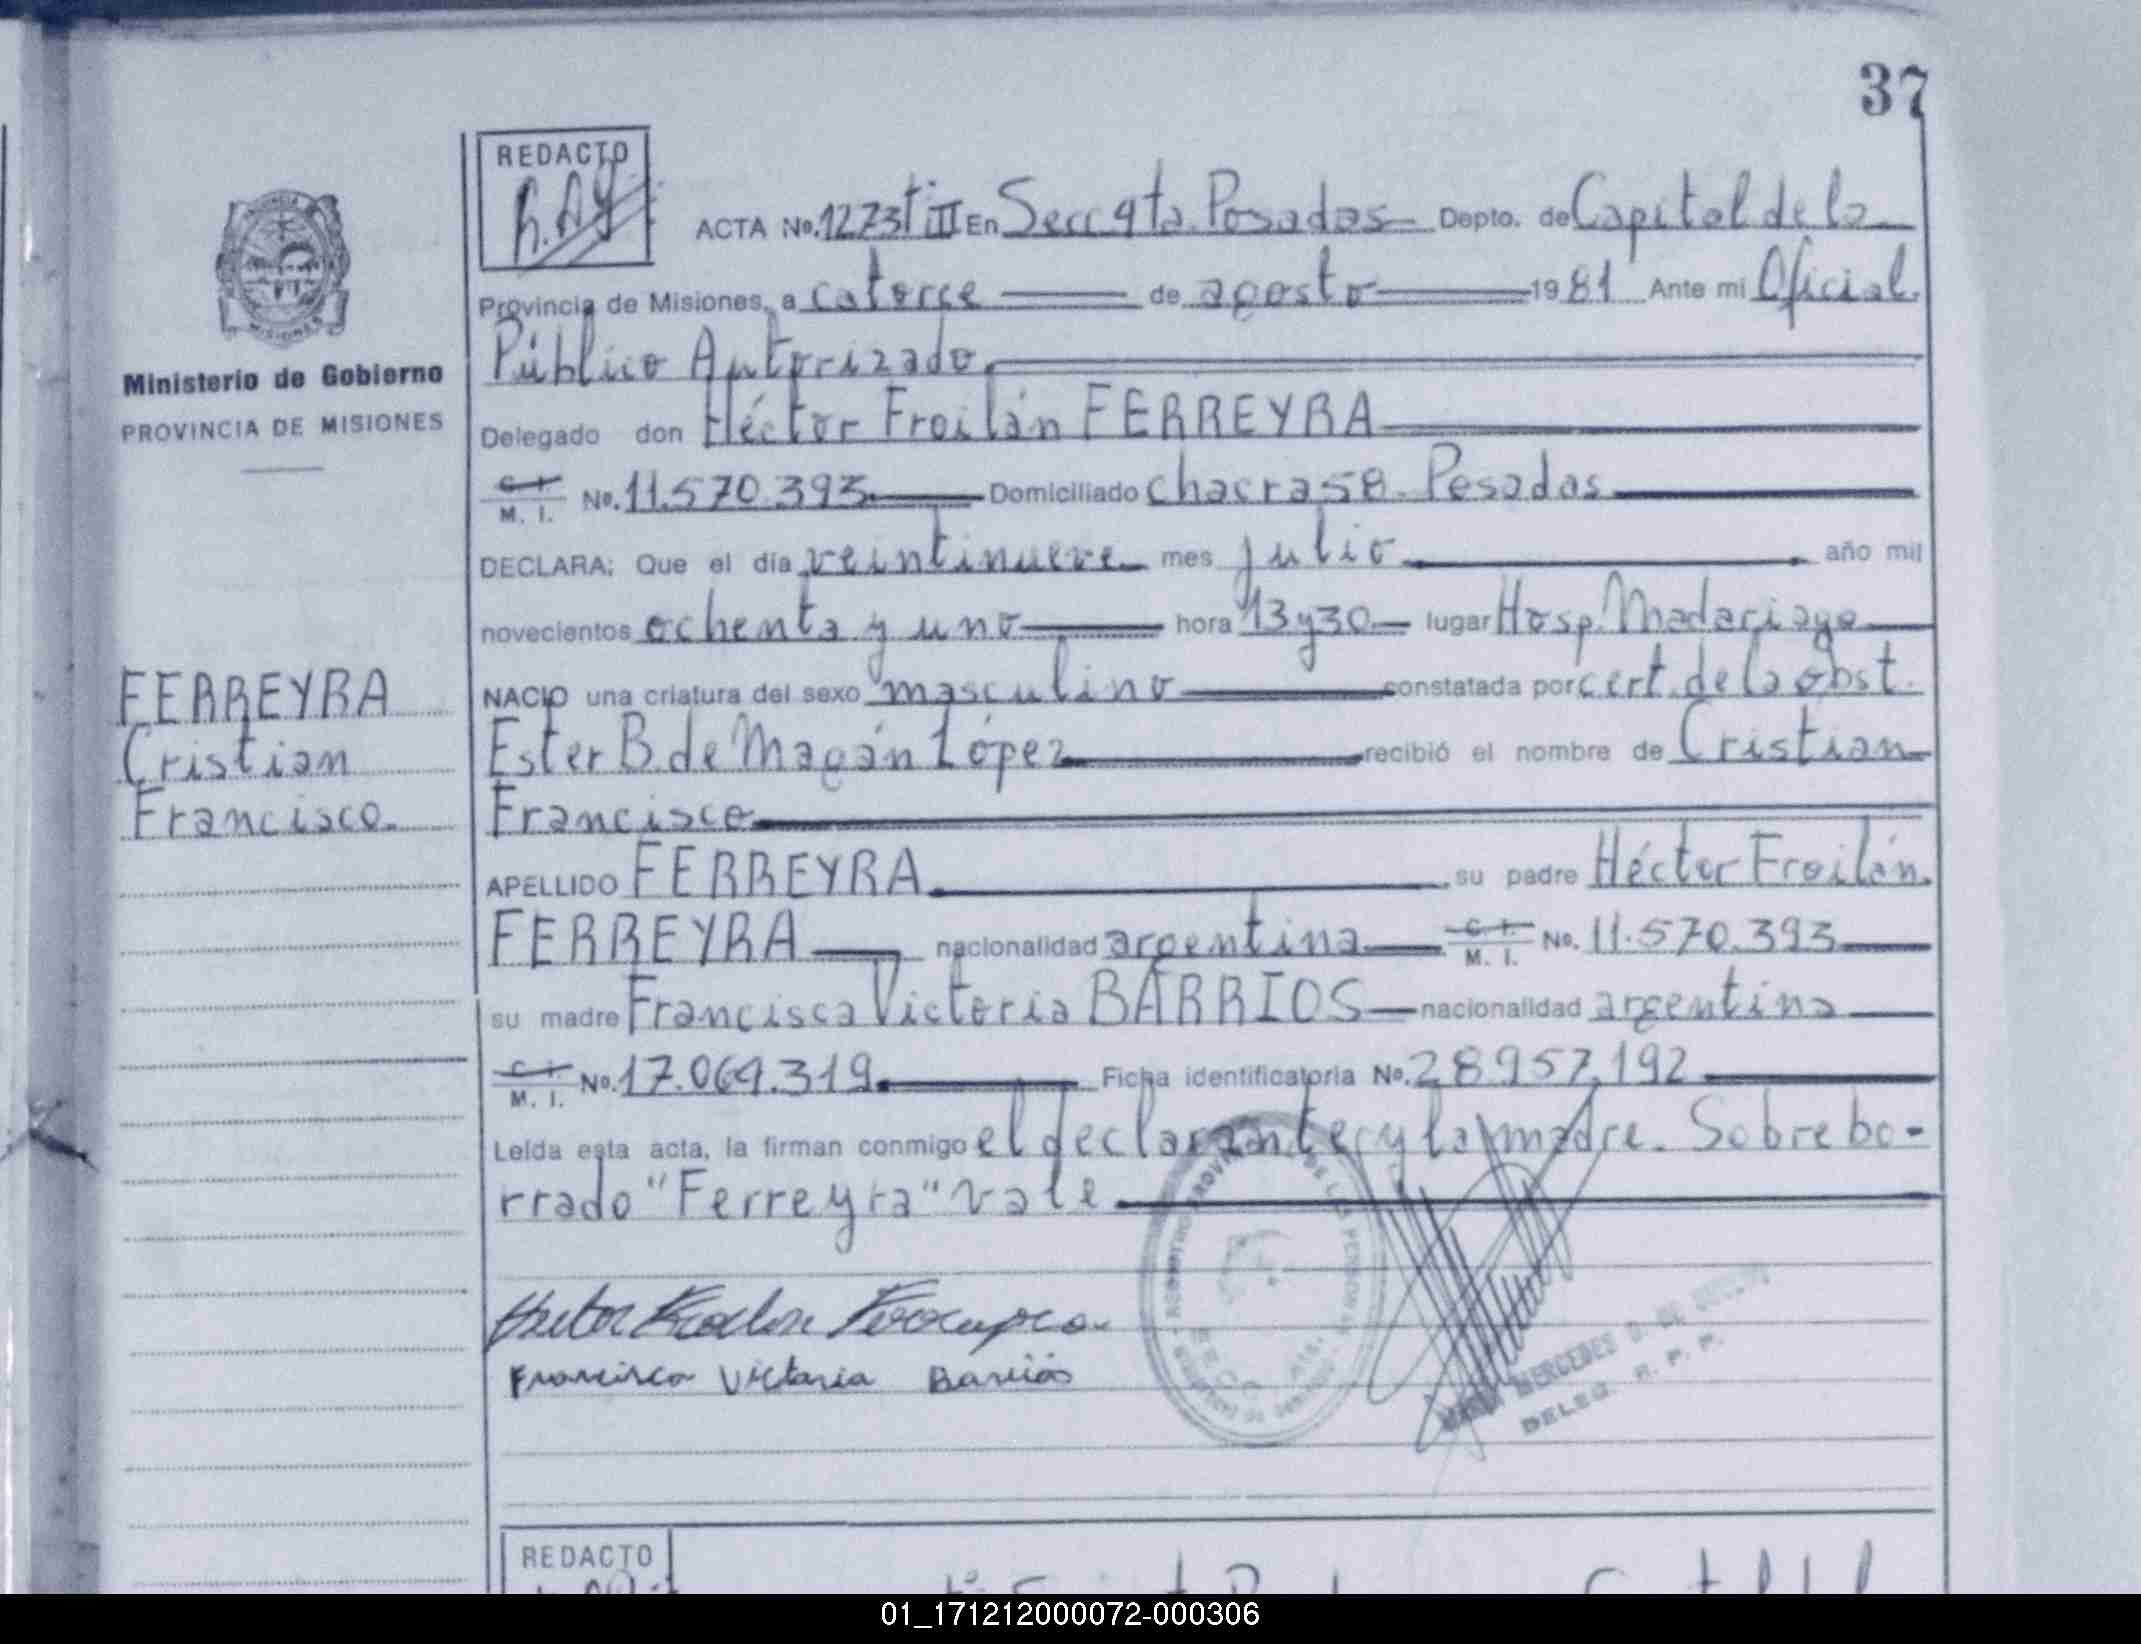 37
REDACTO
ACTA No. 1273 tº III En Secc 4ta. Posadas Depto. de Capital de la
Provincia de Misiones, a catorce de agosto 1981 Ante mi Oficial
Público Autorizado
MISIONES
Ministerio de Gobierno
PROVINCIA DE MISIONES
Delegado don Héctor Froilán FERREYRA
C. I. M. I. No. 11.570.393 Domiciliado chacra 58. Posadas
DECLARA: Que el día veintinueve mes julio año mil
novecientos ochenta y uno hora 13 y 30 lugar Hosp. Madariaga
NACIO una criatura del sexo masculino constatada por cert. de la obst.
Ester B. de Magán López recibió el nombre de Cristian
Francisco
FERREYRA
Cristian
Francisco.
APELLIDO FERREYRA su padre Héctor Froilán
FERREYRA nacionalidad argentina C. I. M. I. No. 11.570.393
su madre Francisca Victoria BARRIOS nacionalidad argentina
C. I. M. I. No. 17.064.319 Ficha identificatoria No. 28.957.192
Leída esta acta, la firman conmigo el declarante y la madre. Sobrebo-
rrado "Ferreyra" vale
Francisca Victoria Barrios
MERCEDES
DELEG. R. P. P.
REDACTO
01_171212000072-000306